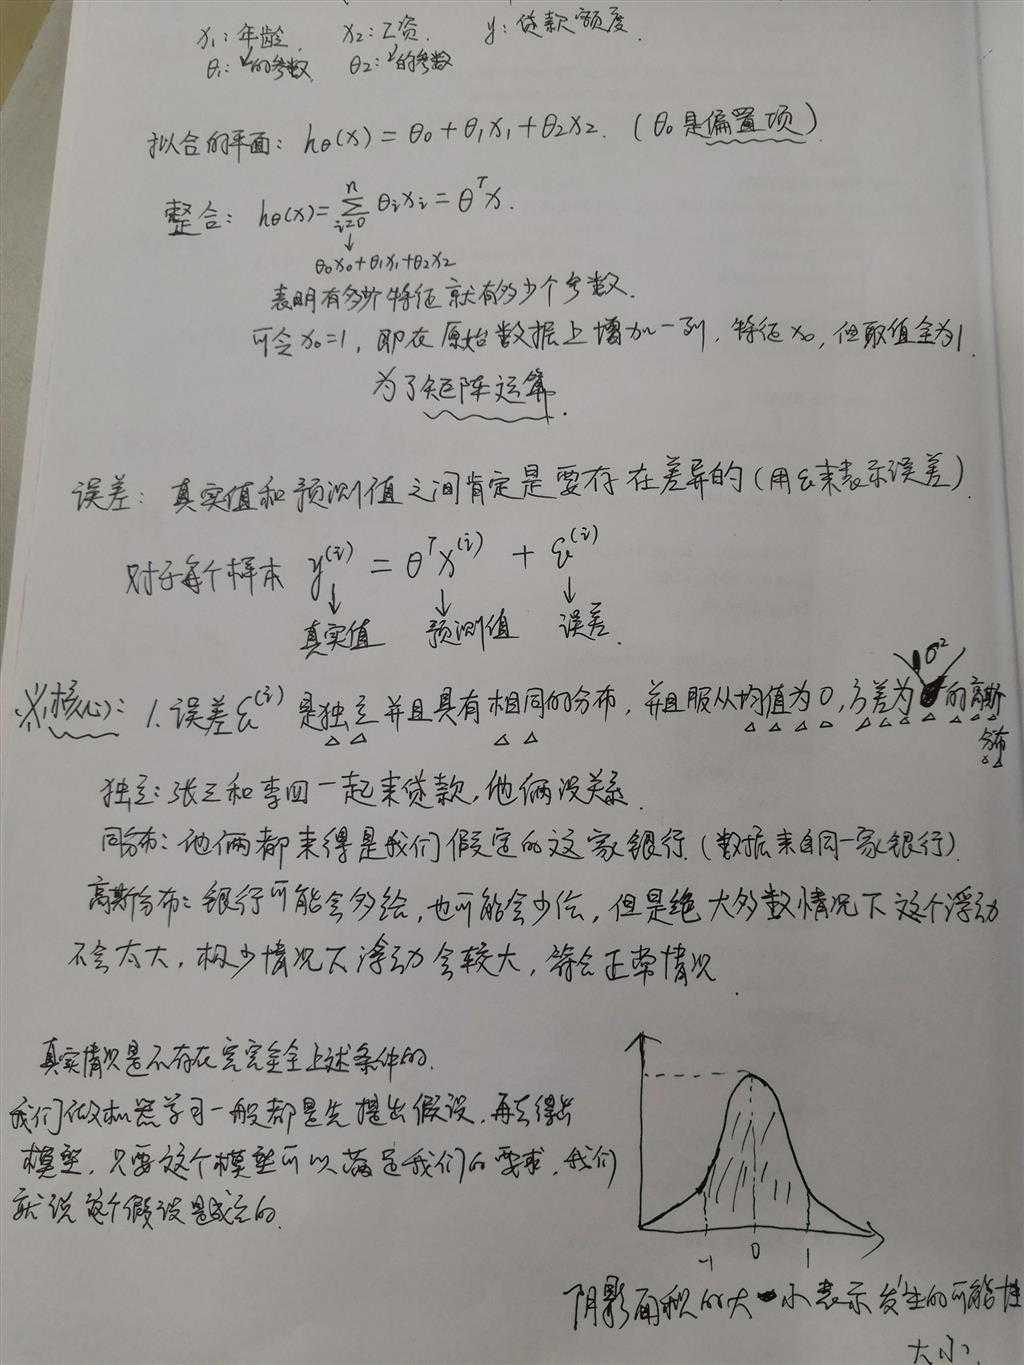 x₁: 年龄. x₂: 工资. y: 贷款额度.
θ₁: 的参数 θ₂: 的参数
拟合的平面: hθ(x) = θ₀ + θ₁x₁ + θ₂x₂. (θ₀是偏置项)
整合: hθ(x) = Σⁿᵢ₌₀ θᵢxᵢ = θᵀx.
θ₀x₀+θ₁x₁+θ₂x₂
表明有多少个特征就有多少个参数.
可令x₀=1, 即在原始数据上增加一列, 特征x₀, 但取值全为1.
为了矩阵运算.
误差: 真实值和预测值之间肯定是要存在差异的(用ε来表示误差).
对于每个样本 y⁽ⁱ⁾ = θᵀx⁽ⁱ⁾ + ε⁽ⁱ⁾
真实值 预测值 误差.
※核心: 1. 误差ε⁽ⁱ⁾是独立并且具有相同的分布, 并且服从均值为0, 方差为σ²的高斯
分布
独立: 张三和李四一起来贷款, 他俩没关系.
同分布: 他俩都来得是我们假定的这家银行.(数据来自同一家银行).
高斯分布: 银行可能会多给, 也可能会少给, 但是绝大多数情况下这个浮动
不会太大, 极少情况下浮动会较大, 符合正常情况.
真实情况是不存在完完全全上述条件的.
我们做机器学习一般都是先提出假设, 再去得出
模型, 只要这个模型可以满足我们的要求, 我们
就说这个假设是成立的.
-1 0 1
阴影面积的大小表示发生的可能性
大小.